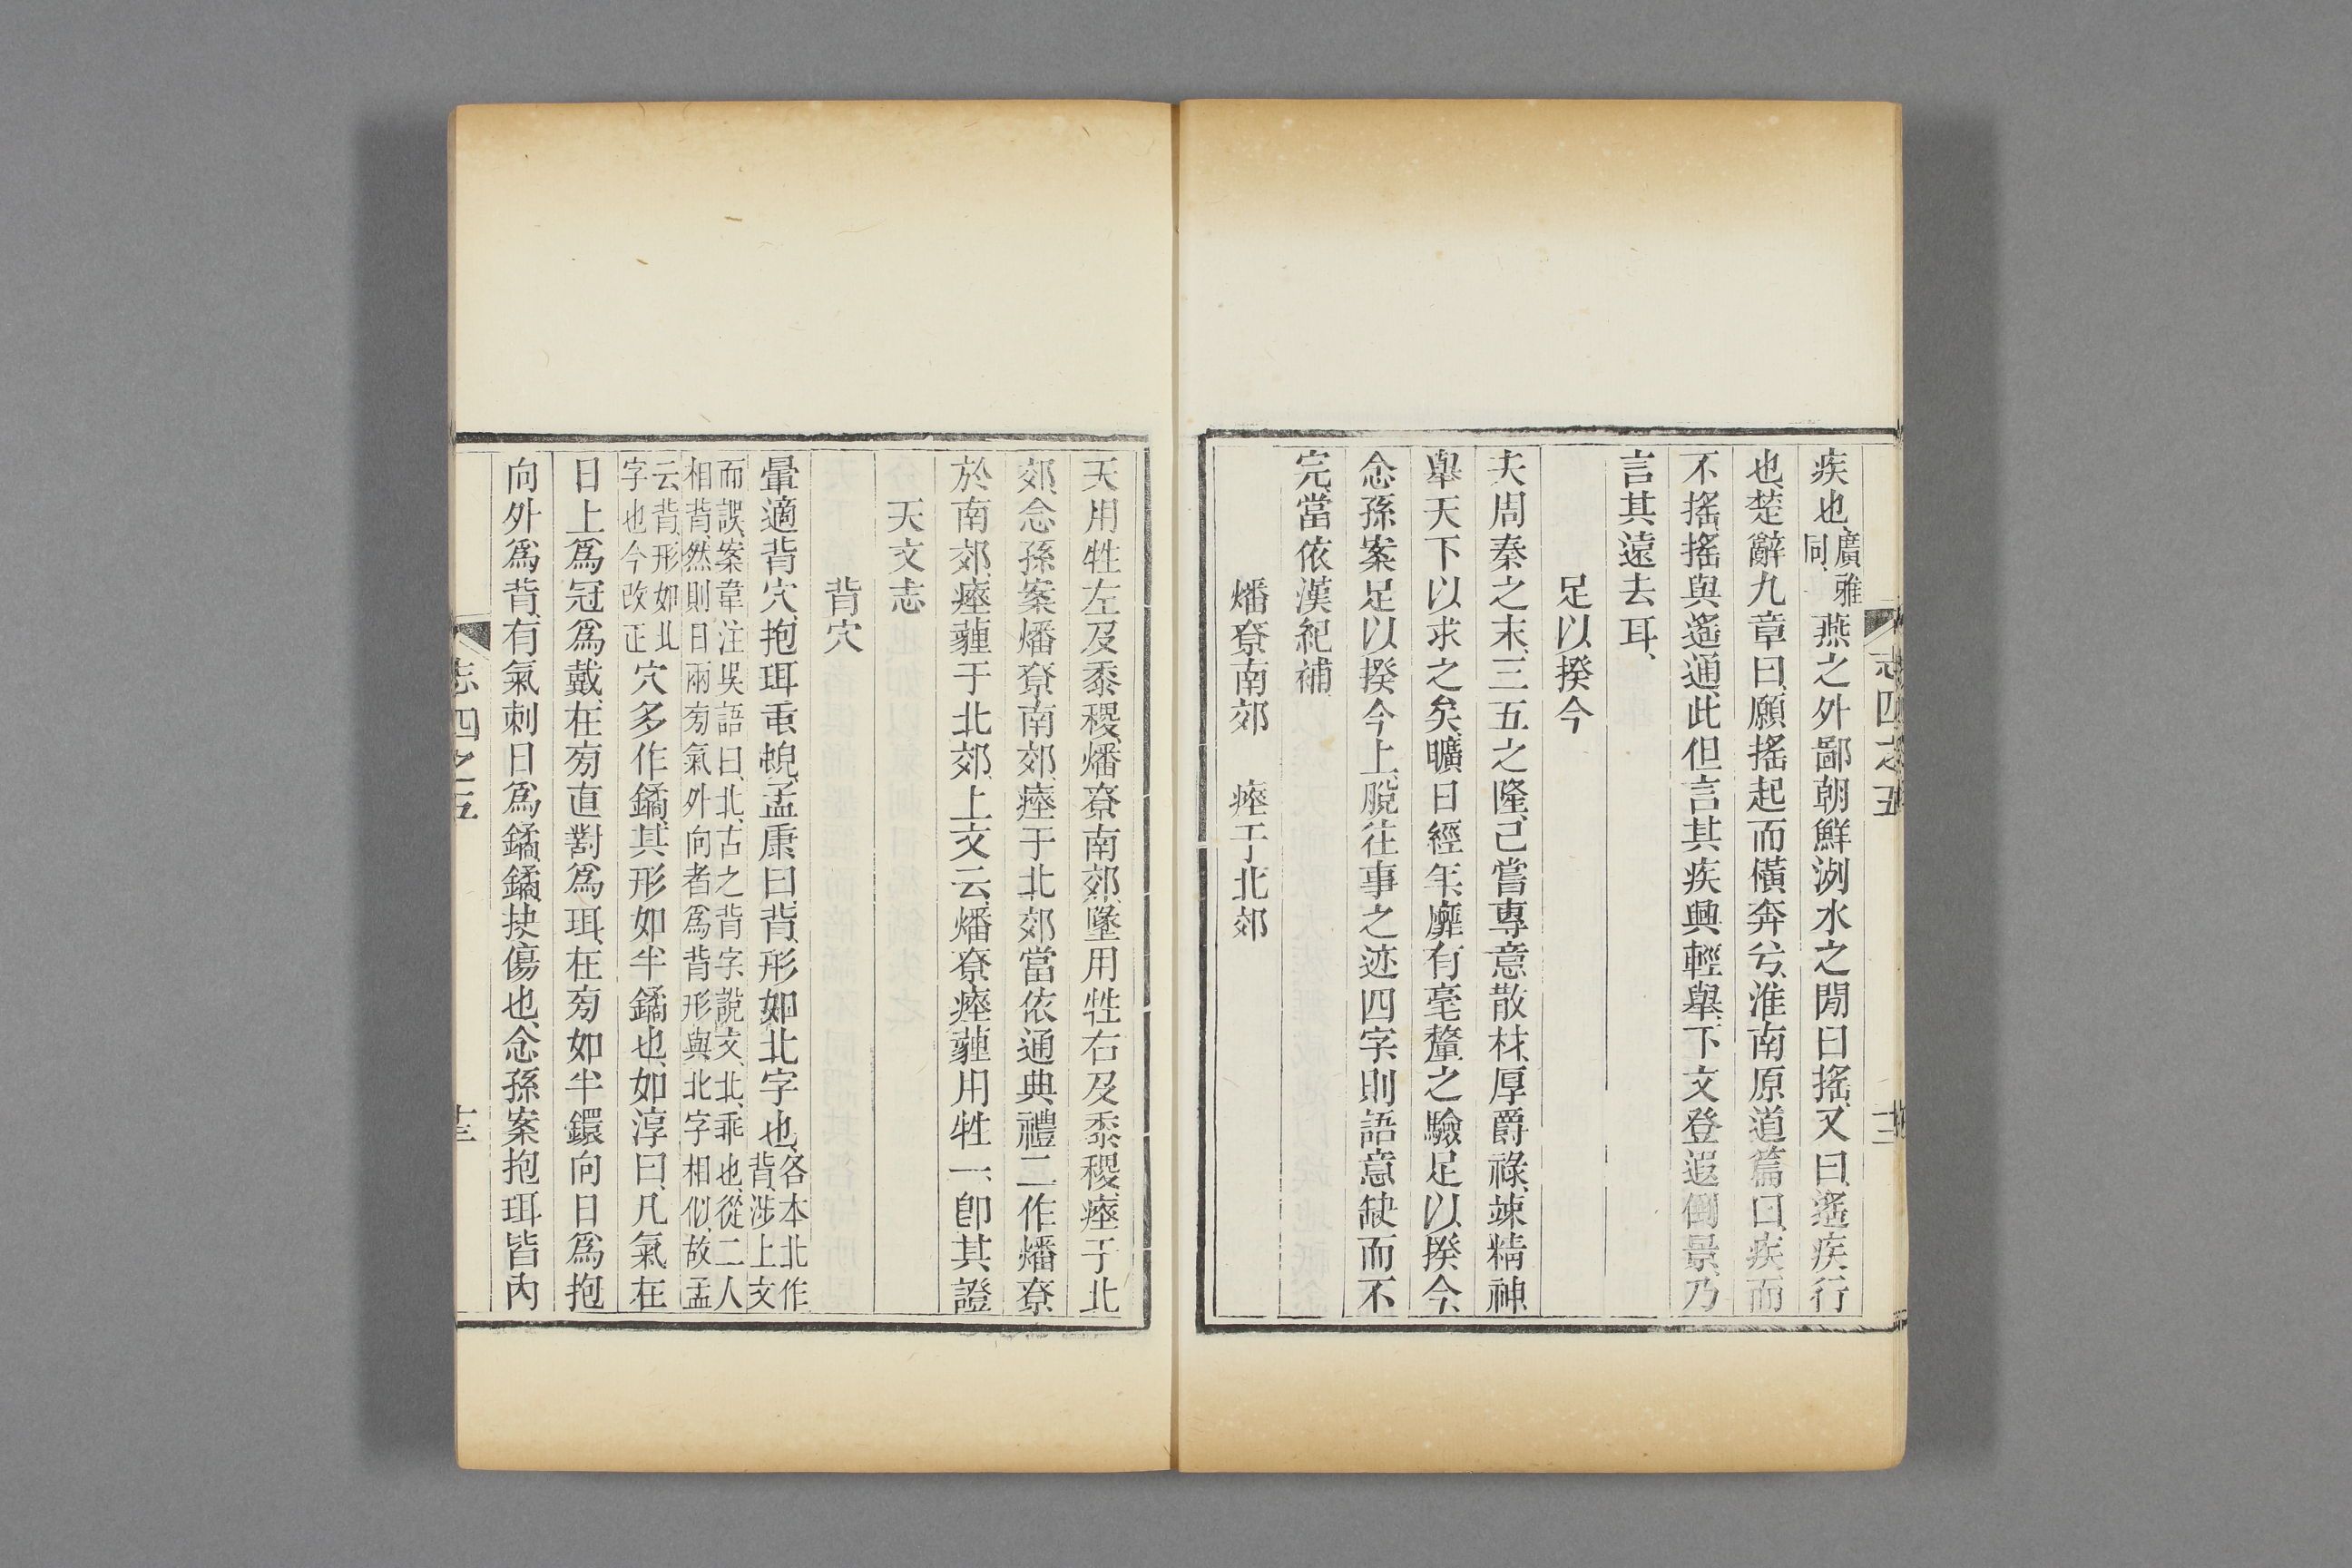 疾也、廣雅同、燕之外鄙朝鮮洌水之閒曰搖、又曰遙疾行
也、楚辭九章曰、願搖起而橫奔兮、淮南原道篇曰、疾而
不搖、搖與遙通、此但言其疾興輕舉、下文登遐倒景、乃
言其遠去耳、
足以揆今
夫周秦之末、三五之隆、已嘗專意散材、厚爵祿、竦精神、
舉天下以求之矣、曠日經年、靡有毫釐之驗、足以揆今、
念孫案足以揆今上、脫往事之迹四字、則語意缺而不
完、當依漢紀補、
燔尞南郊 瘞于北郊
志四之五
天用牲左及黍稷、燔尞南郊、墬用牲右及黍稷、瘞于北
郊、念孫案燔尞南郊、瘞于北郊、當依通典禮二作燔尞
於南郊、瘞薶于北郊、上文云、燔尞瘞薶用牲一、卽其證
天文志
背穴
暈適背穴、抱珥䖝蜺、孟康曰、背、形如北字也、各本北作背、涉上文
而誤、案韋注吳語曰、北、古之背字、說文、北、乖也、從二人
相背、然則日兩旁氣外向者爲背、形與北字相似、故孟
云背、形如北字也、今改正穴多作鐍、其形如半鐍也、如淳曰、凡氣在
日上爲冠爲戴、在旁直對爲珥、在旁如半鐶向日爲抱
向外爲背、有氣刺日爲鐍、鐍抉傷也、念孫案抱珥皆內
志四之五
十三